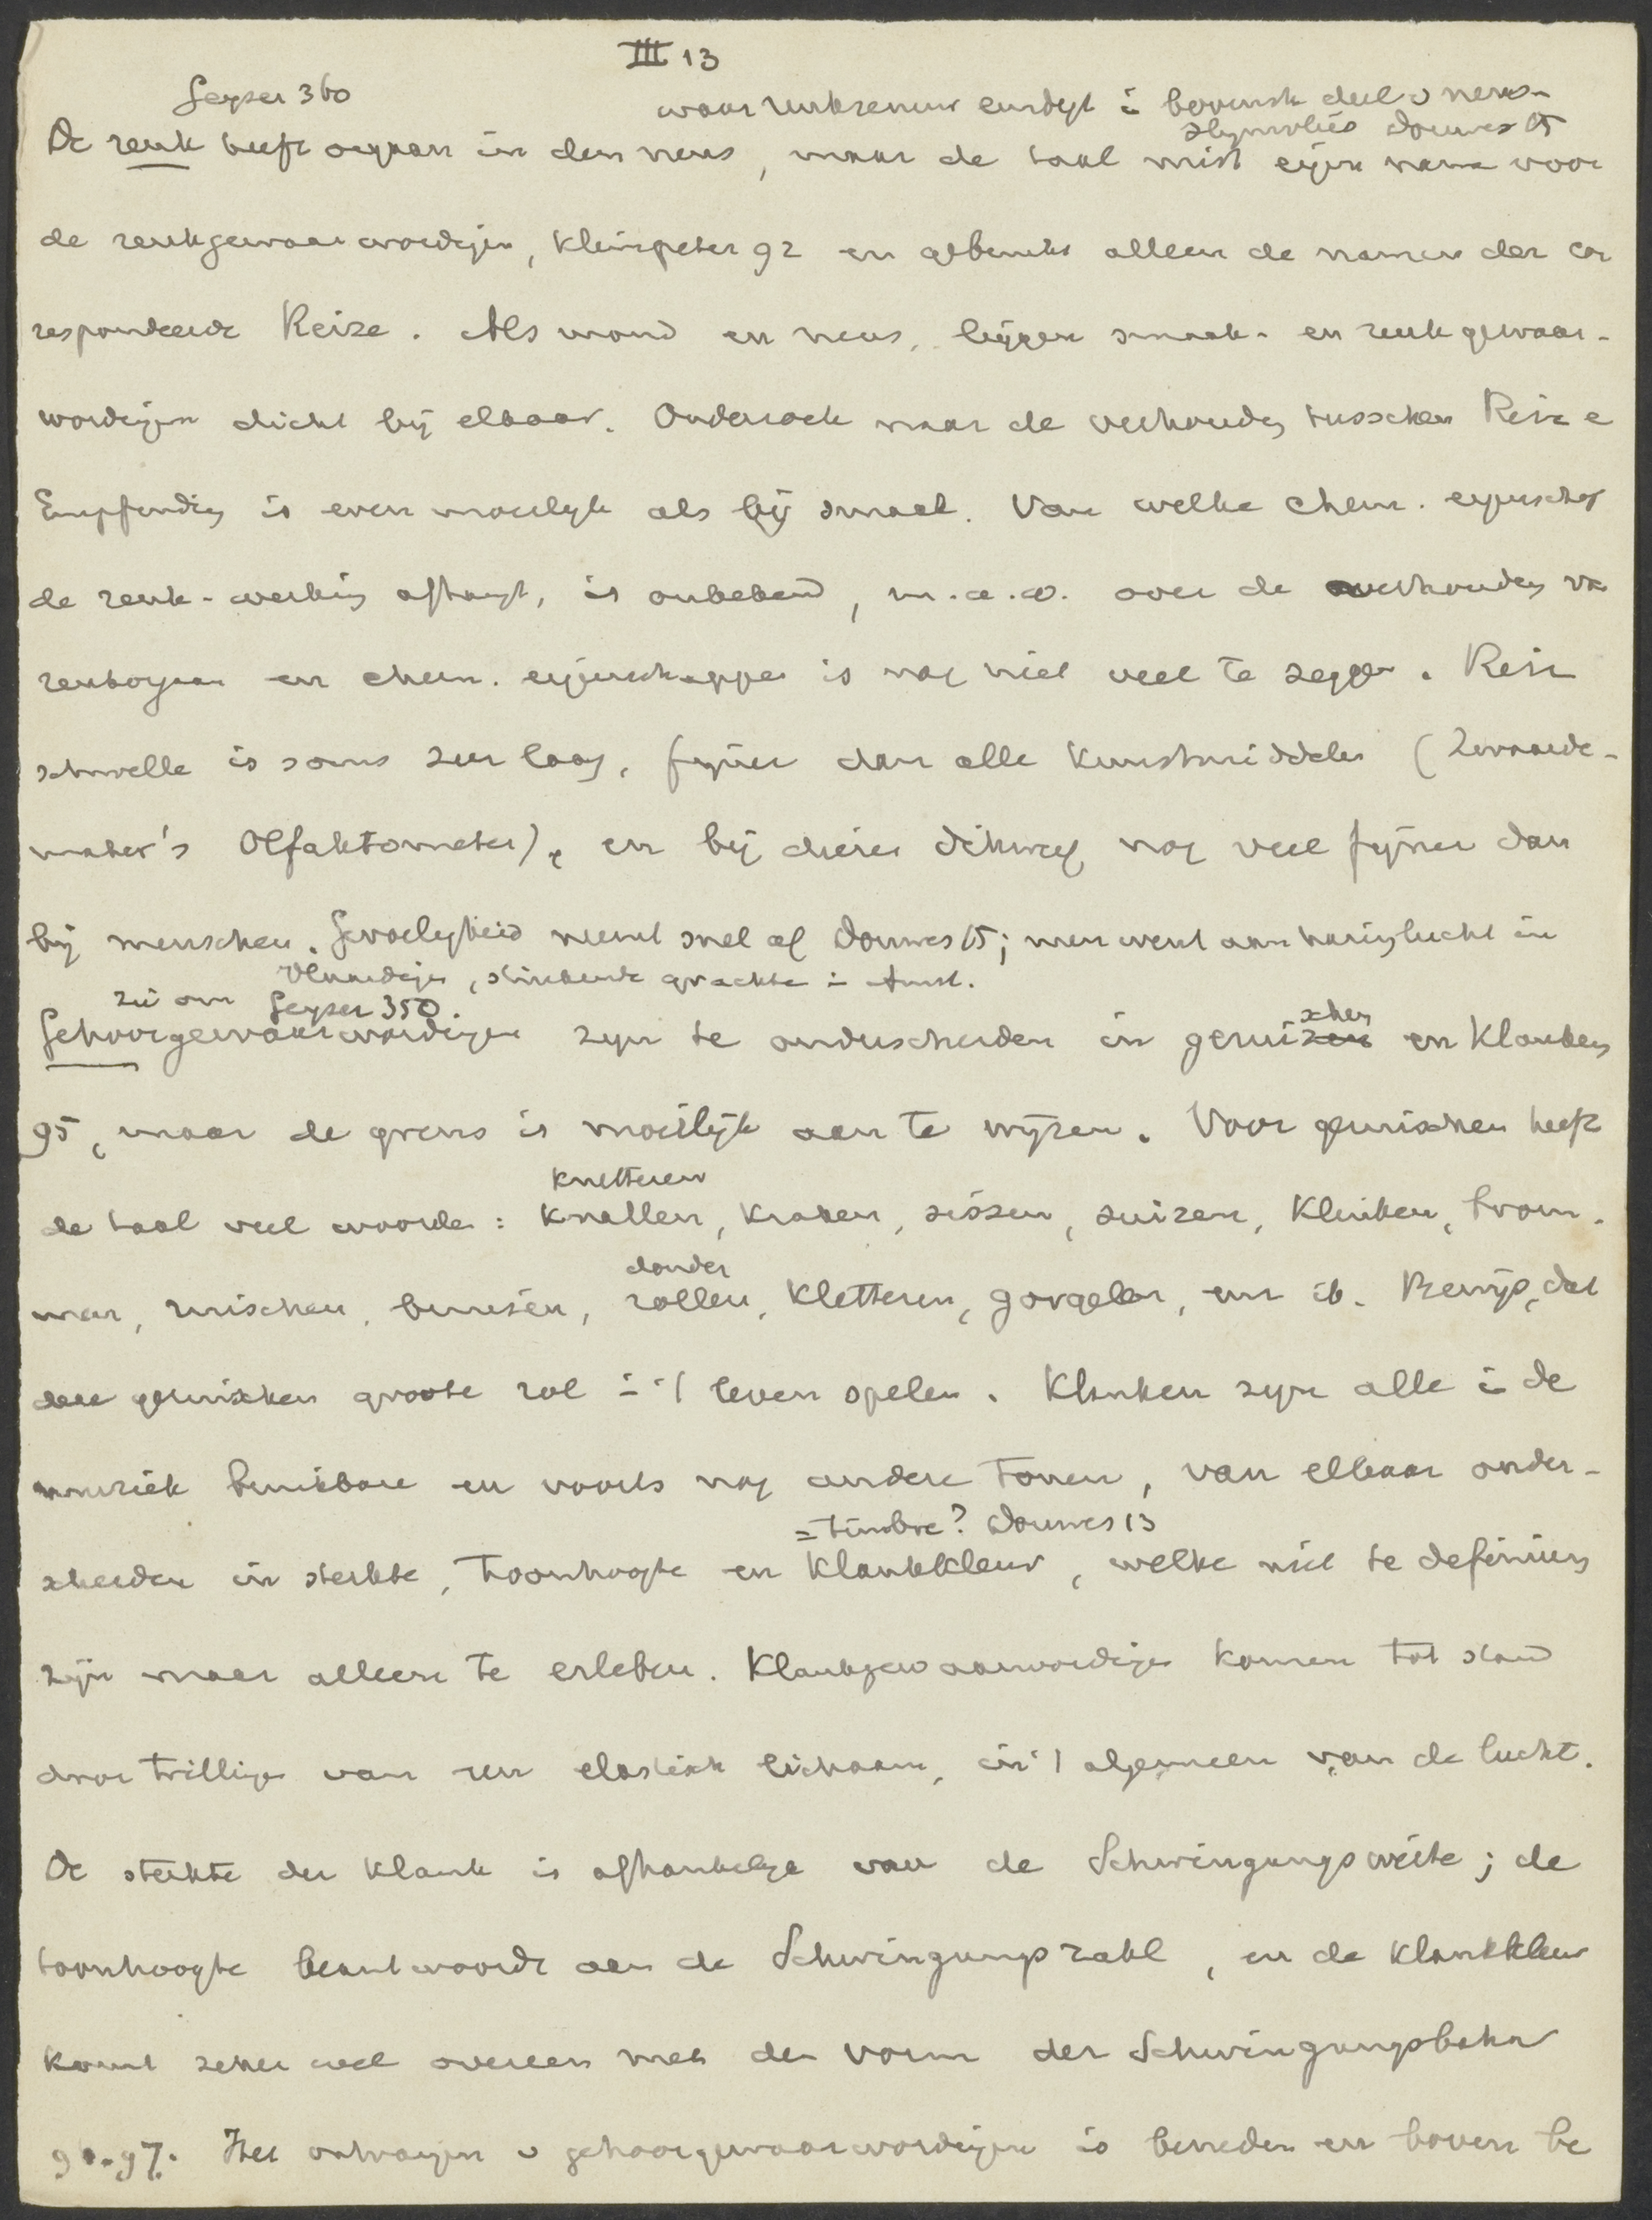 III 13
Geyser 360
waar reukzenuw eindigt i bovenste deel v neus-
slijmvlies Douwes 15
De reuk heeft orgaan in den neus, maar de taal mist eigen naam voor
de reukgewaarwordigen, Kleinpeter 92 en gebruikt alleen de namen der cor
respondeerde Reize. Als mond en neus, liggen smaak- en reukgewaar-
wordigen dicht bij elkaar. Onderzoek naar de verhoudg tusschen Reiz e
Empfindg is even moeilijk als bij smaak. Van welke chem. eigenschap
de reuk-werking afhangt, is onbekend, m.a.w. over de verhoudg va
reukorgaan en chem. eigenschappen is nog niet veel te zeggen. Reiz
schwelle is soms zeer laag, fijner dan alle Kunstmiddelen (Zwaarde-
maker's Olfaktometer), en bij dieren dikwijls nog veel fijner dan
bij menschen. Gevoeligheid neemt snel af Douwes 15; men went aan haringlucht in
Vlaardigen, stinkende grachte i Amst.
zie om Geyser 350.
Gehoorgewaarwordigen zijn te onderscheiden in geruischen en Klanken
95, maar de grens is moeilijk aan te wijzen. Voor geruischen heeft
knetteren
de taal veel woorden: Knallen, Kraken, sissen, suizen, Klinken, brom-
donder
men, ruischen, bruisen, rollen, Kletteren, gorgelen, enz ib. Bewijs, dat
deze geruischen groote rol i 't leven spelen. Klanken zijn alle i de
muziek bruikbare en voorts nog andere Tonen, van elkaar onder-
= timbre? Douwes 13
scheiden in sterkte, Toonhoogte en Klankkleur, welke niet te definieren
zijn maar alleen te erleben. Klankgewaarwordigen komen tot stand
door Trilligen van een elastisch lichaam, in 't algemeen van de lucht.
De sterkte der Klank is afhankelijk van de Schwingungsweite; de
toonhoogte beantwoordt aan de Schwingungszahl, en de Klankkleur
komt zeker wel overeen met den vorm der Schwingungsbahn
96.97. Het ontvangen v gehoorgewaarwordigen is beneden en boven be